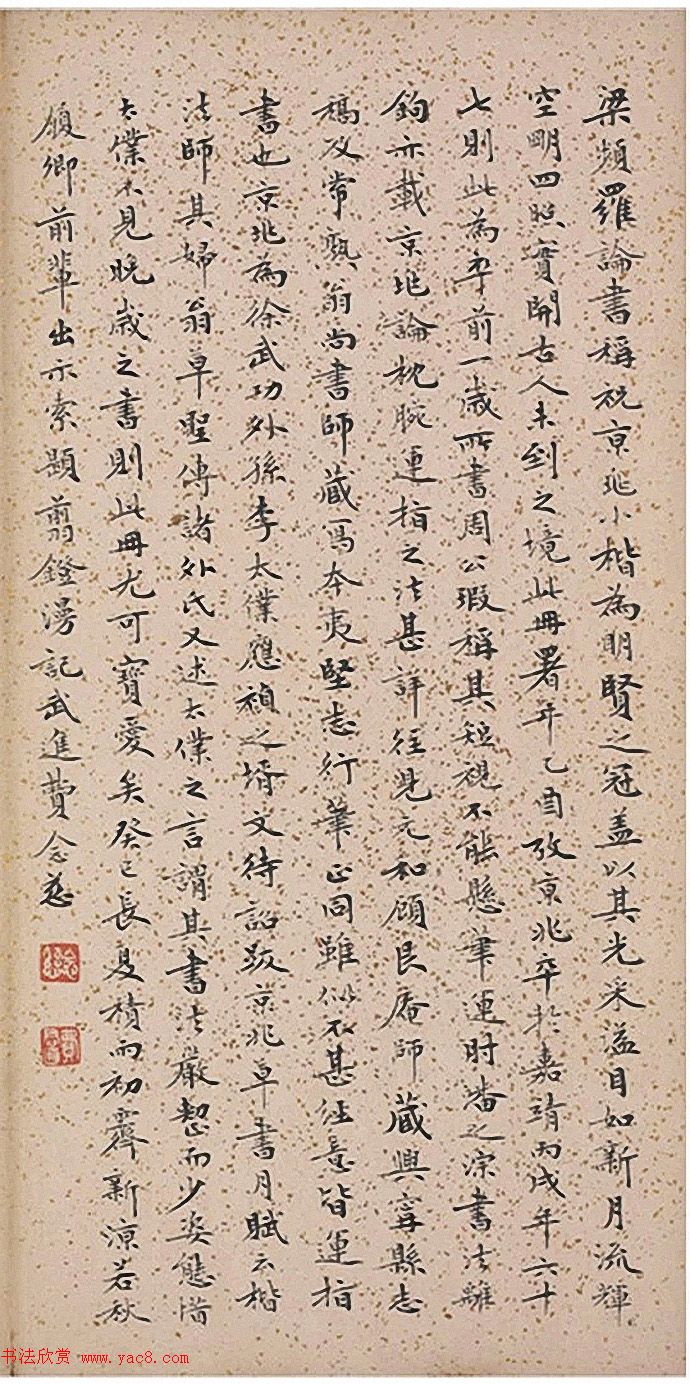 梁頻羅論書稱祝京兆小楷為明賢之冠蓋以其光采溢目如新月流輝
空明四照實開古人未到之境此冊署年乙酉攷京兆卒於嘉靖丙戌年六十
七則此為卒前一歲所書周公瑕稱其短視不能懸筆運時蕃之深書法雖
鉤亦載京兆論枕腕運指之法甚詳往見元和顧艮庵師藏興寧縣志
稿及常熟翁尚書師藏寫本夷堅志行筆正同雖似不甚經意皆運指
書也京兆為徐武功外孫李太僕應禎之壻文待詔跋京兆草書月賦云楷
法師其婦翁草聖傳諸外氏又述太僕之言謂其書法嚴整而少姿態惜
太僕不見晚歲之書則此冊尤可寶愛矣癸巳長夏積雨初霽新涼若秋
頎卿前輩出示索題翦鐙漫記武進費念慈
书法欣赏 www.yac8.com